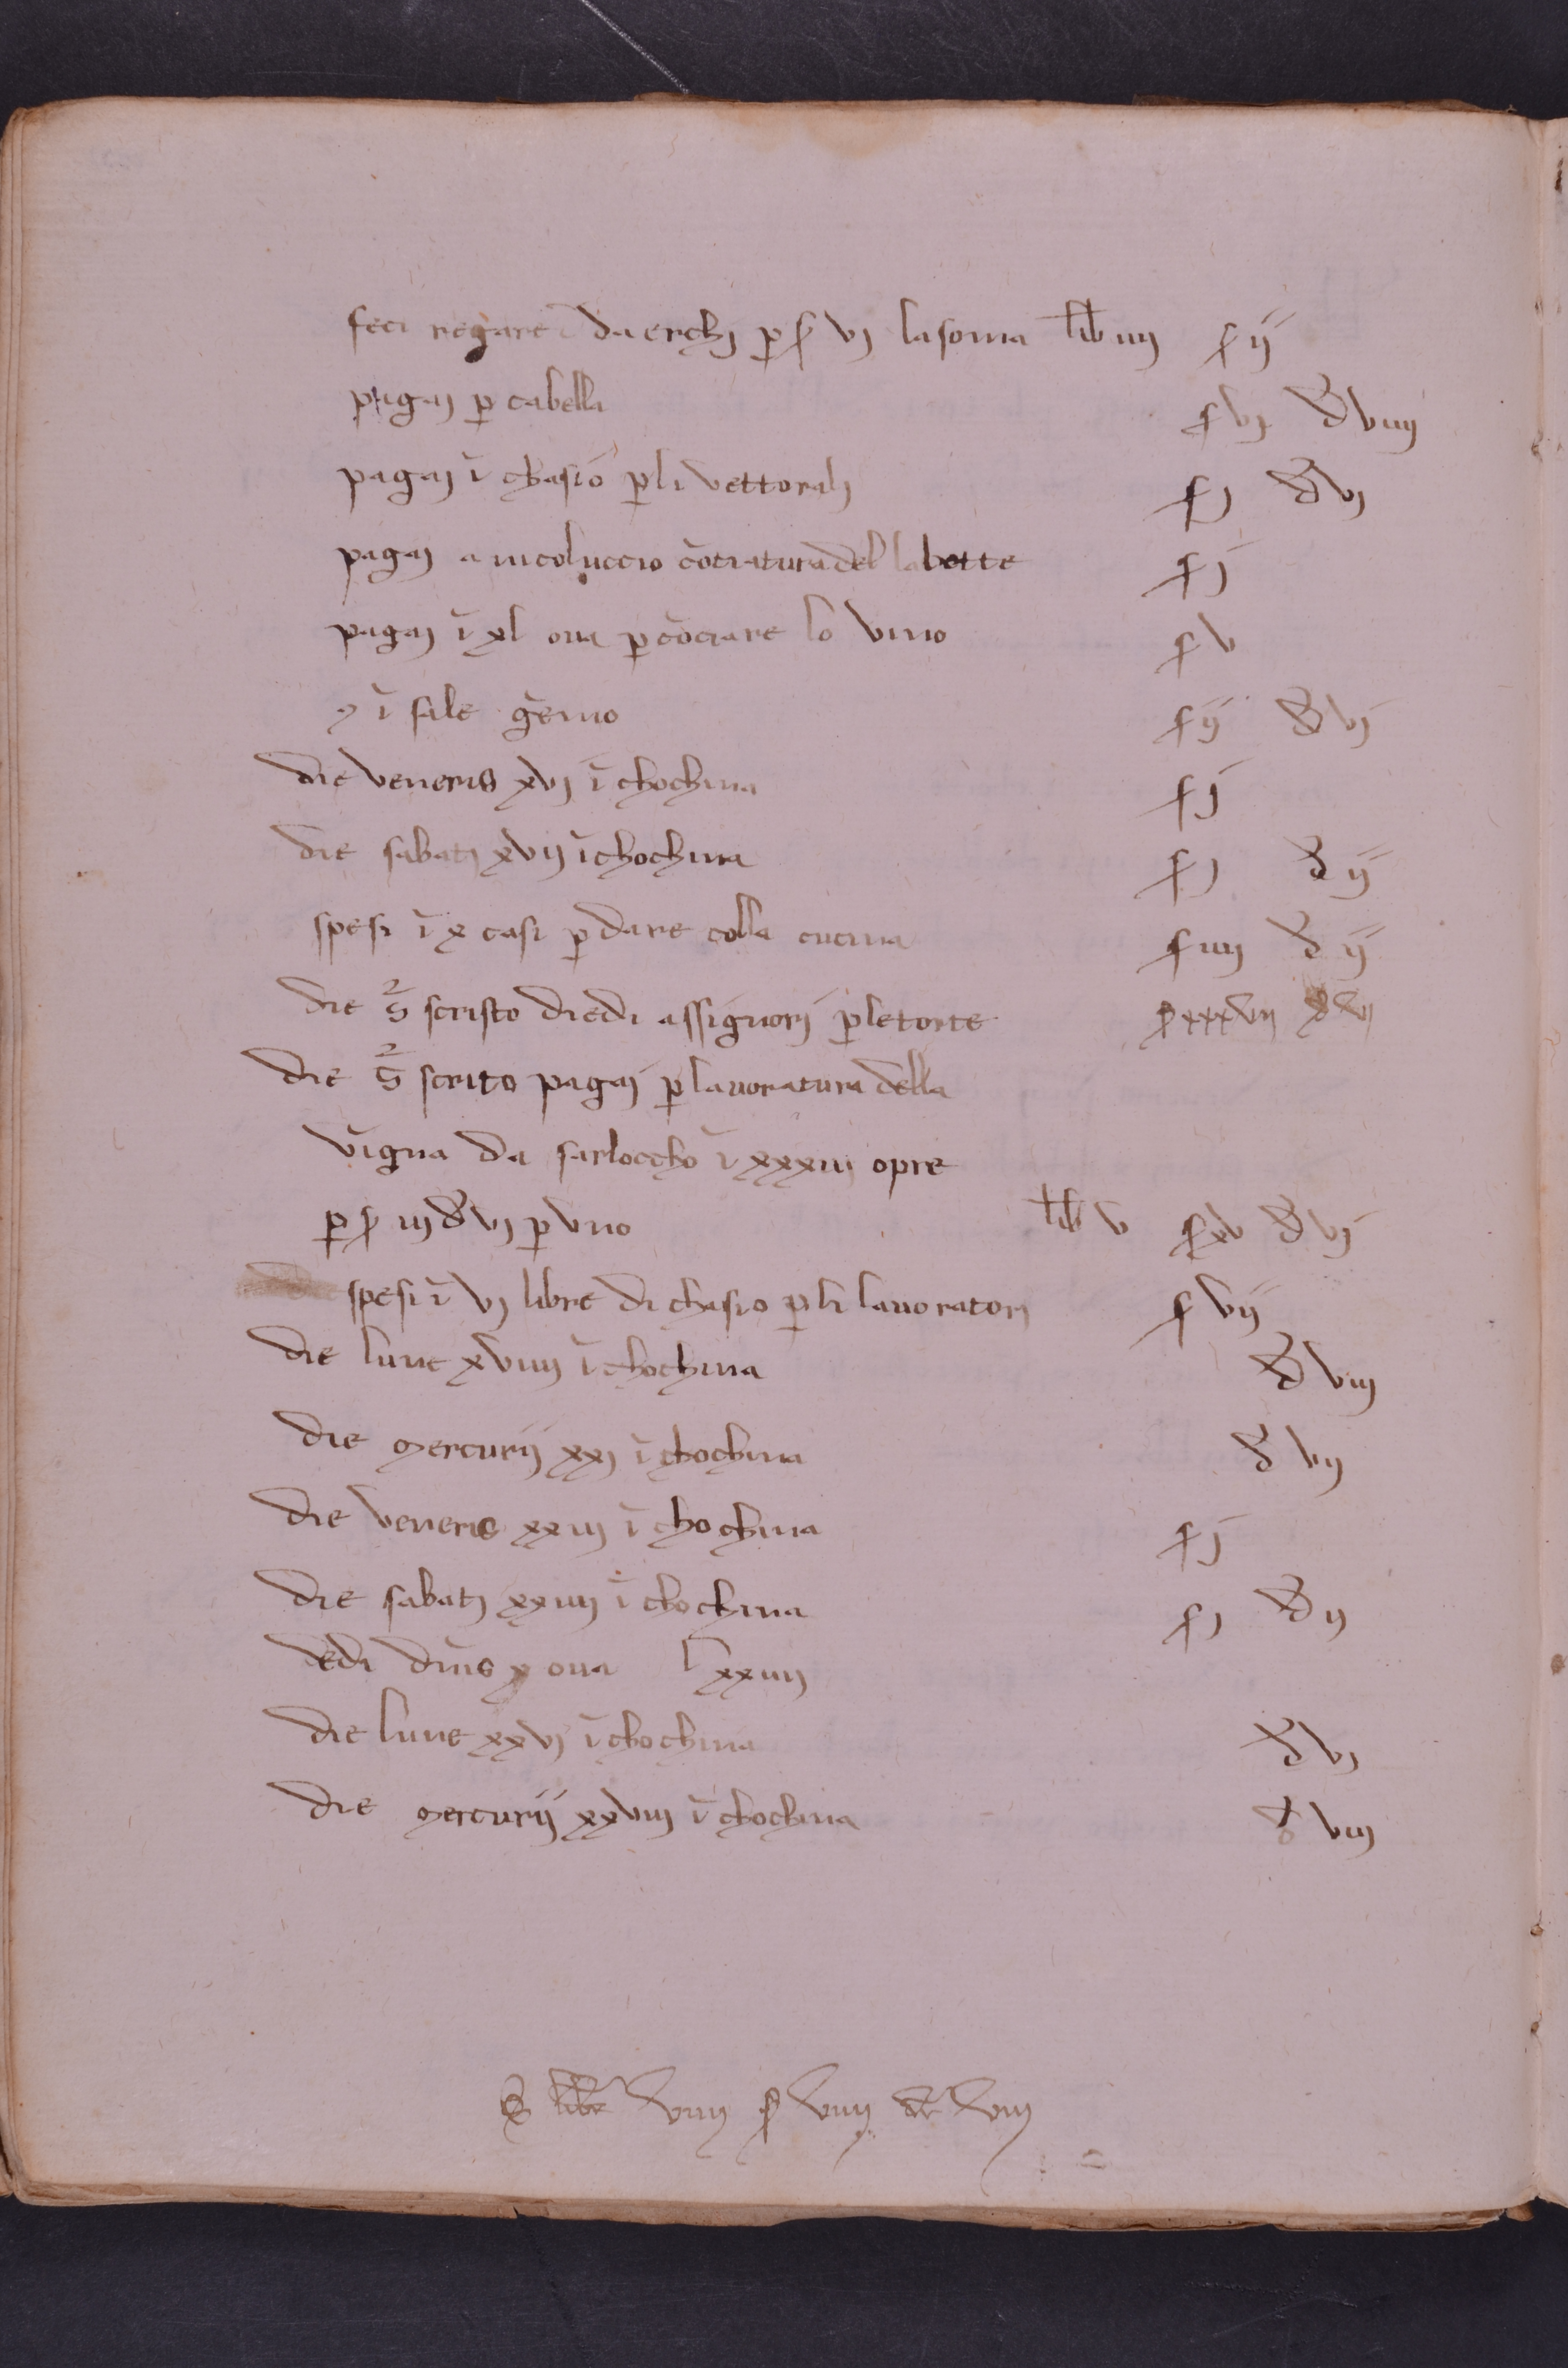 feci regare da erchj ꝑ s vj la soma libr iiij s ij
pagaj ꝑ cabella s vj d viiij
pagaj ĩ chasio ꝑ li vettoralj s j d vj
pagaj a nicoluccio c̃ociatura del la botte s j
pagaj ĩ xl ova ꝑ c̃ociare lo vino s v
ĩ sale g̃emo s ij d vj
die veneris xvj ĩ chochina s j
die sabatj xvij ĩ chochina s j d ij
spesi ĩ x casi ꝑ dare colla cucina s iiij d ij
die scristo diedi assignorj ꝑ le torte s xxxvij d vij
die scrito pagaj ꝑ lavoratura della
vigna da sarloccho ĩ xxxiij opre
ꝑ s iij d vj ꝑ uno libr v s xv d vj
spesi ĩ vj libre di chasio ꝑ li lavoratorj s vij
die lune xviiij ĩ chochina d viij
die mercurij xxj ĩ chochina d vij
die veneris xxiij ĩ chochina s j
die sabatj xxiiij ĩ chochina s j d ij
dedi ova lxxiiij
die lune xxvj ĩ chochina d vj
die mercurij xxviij ĩ chochina d viij
libr viiij s viiij d viij